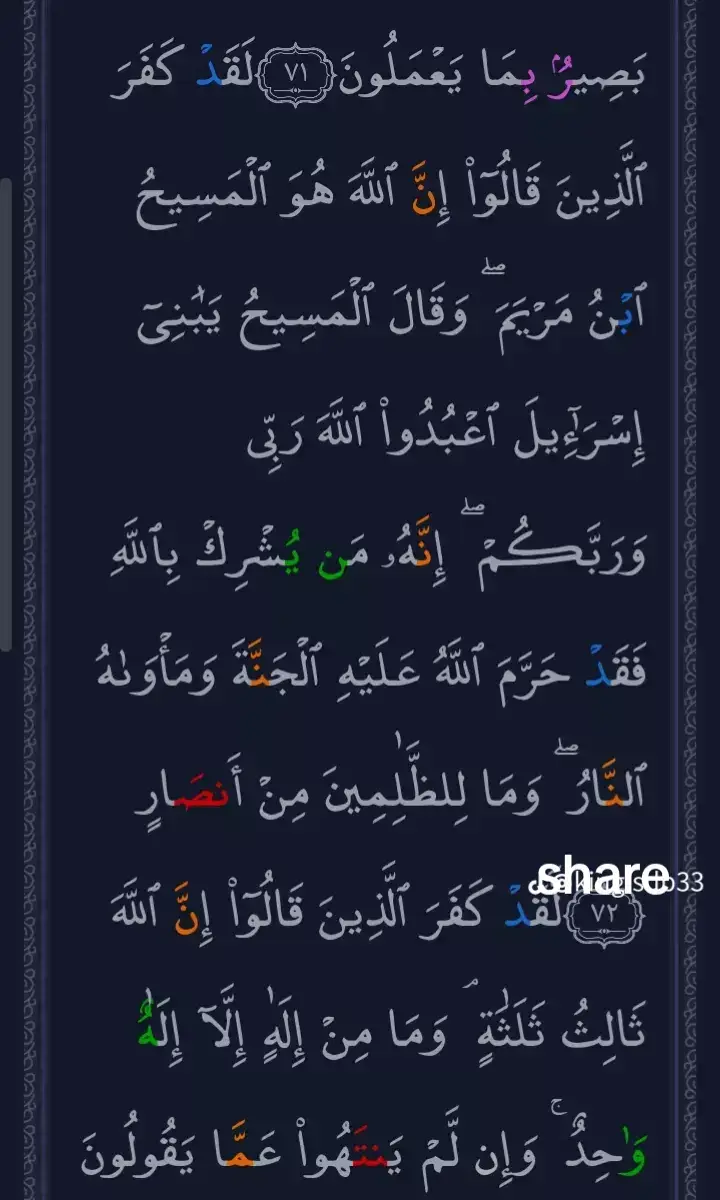 بَصِيرٌۢ بِمَا يَعْمَلُونَ ٧١ لَقَدْ كَفَرَ
ٱلَّذِينَ قَالُوٓا۟ إِنَّ ٱللَّهَ هُوَ ٱلْمَسِيحُ
ٱبْنُ مَرْيَمَ ۖ وَقَالَ ٱلْمَسِيحُ يَـٰبَنِىٓ
إِسْرَٰٓءِيلَ ٱعْبُدُوا۟ ٱللَّهَ رَبِّى
وَرَبَّكُمْ ۖ إِنَّهُۥ مَن يُشْرِكْ بِٱللَّهِ
فَقَدْ حَرَّمَ ٱللَّهُ عَلَيْهِ ٱلْجَنَّةَ وَمَأْوَىٰهُ
ٱلنَّارُ ۖ وَمَا لِلظَّـٰلِمِينَ مِنْ أَنصَارٍ
share
٧٢ لَقَدْ كَفَرَ ٱلَّذِينَ قَالُوٓا۟ إِنَّ ٱللَّهَ
ثَالِثُ ثَلَـٰثَةٍ ۘ وَمَا مِنْ إِلَـٰهٍ إِلَّآ إِلَـٰهٌ
وَٰحِدٌ ۚ وَإِن لَّمْ يَنتَهُوا۟ عَمَّا يَقُولُونَ